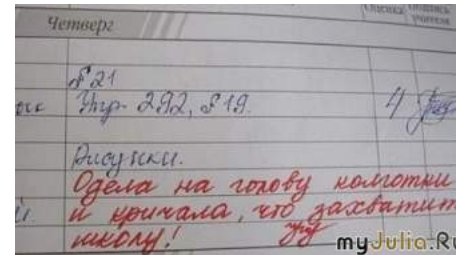 Оценка Подпись учителя
Четверг
§ 21
Упр. 292, § 19. 4
Рисунки.
Одела на голову колготки
и кричала, что захватит
школу!
myJulia.Ru